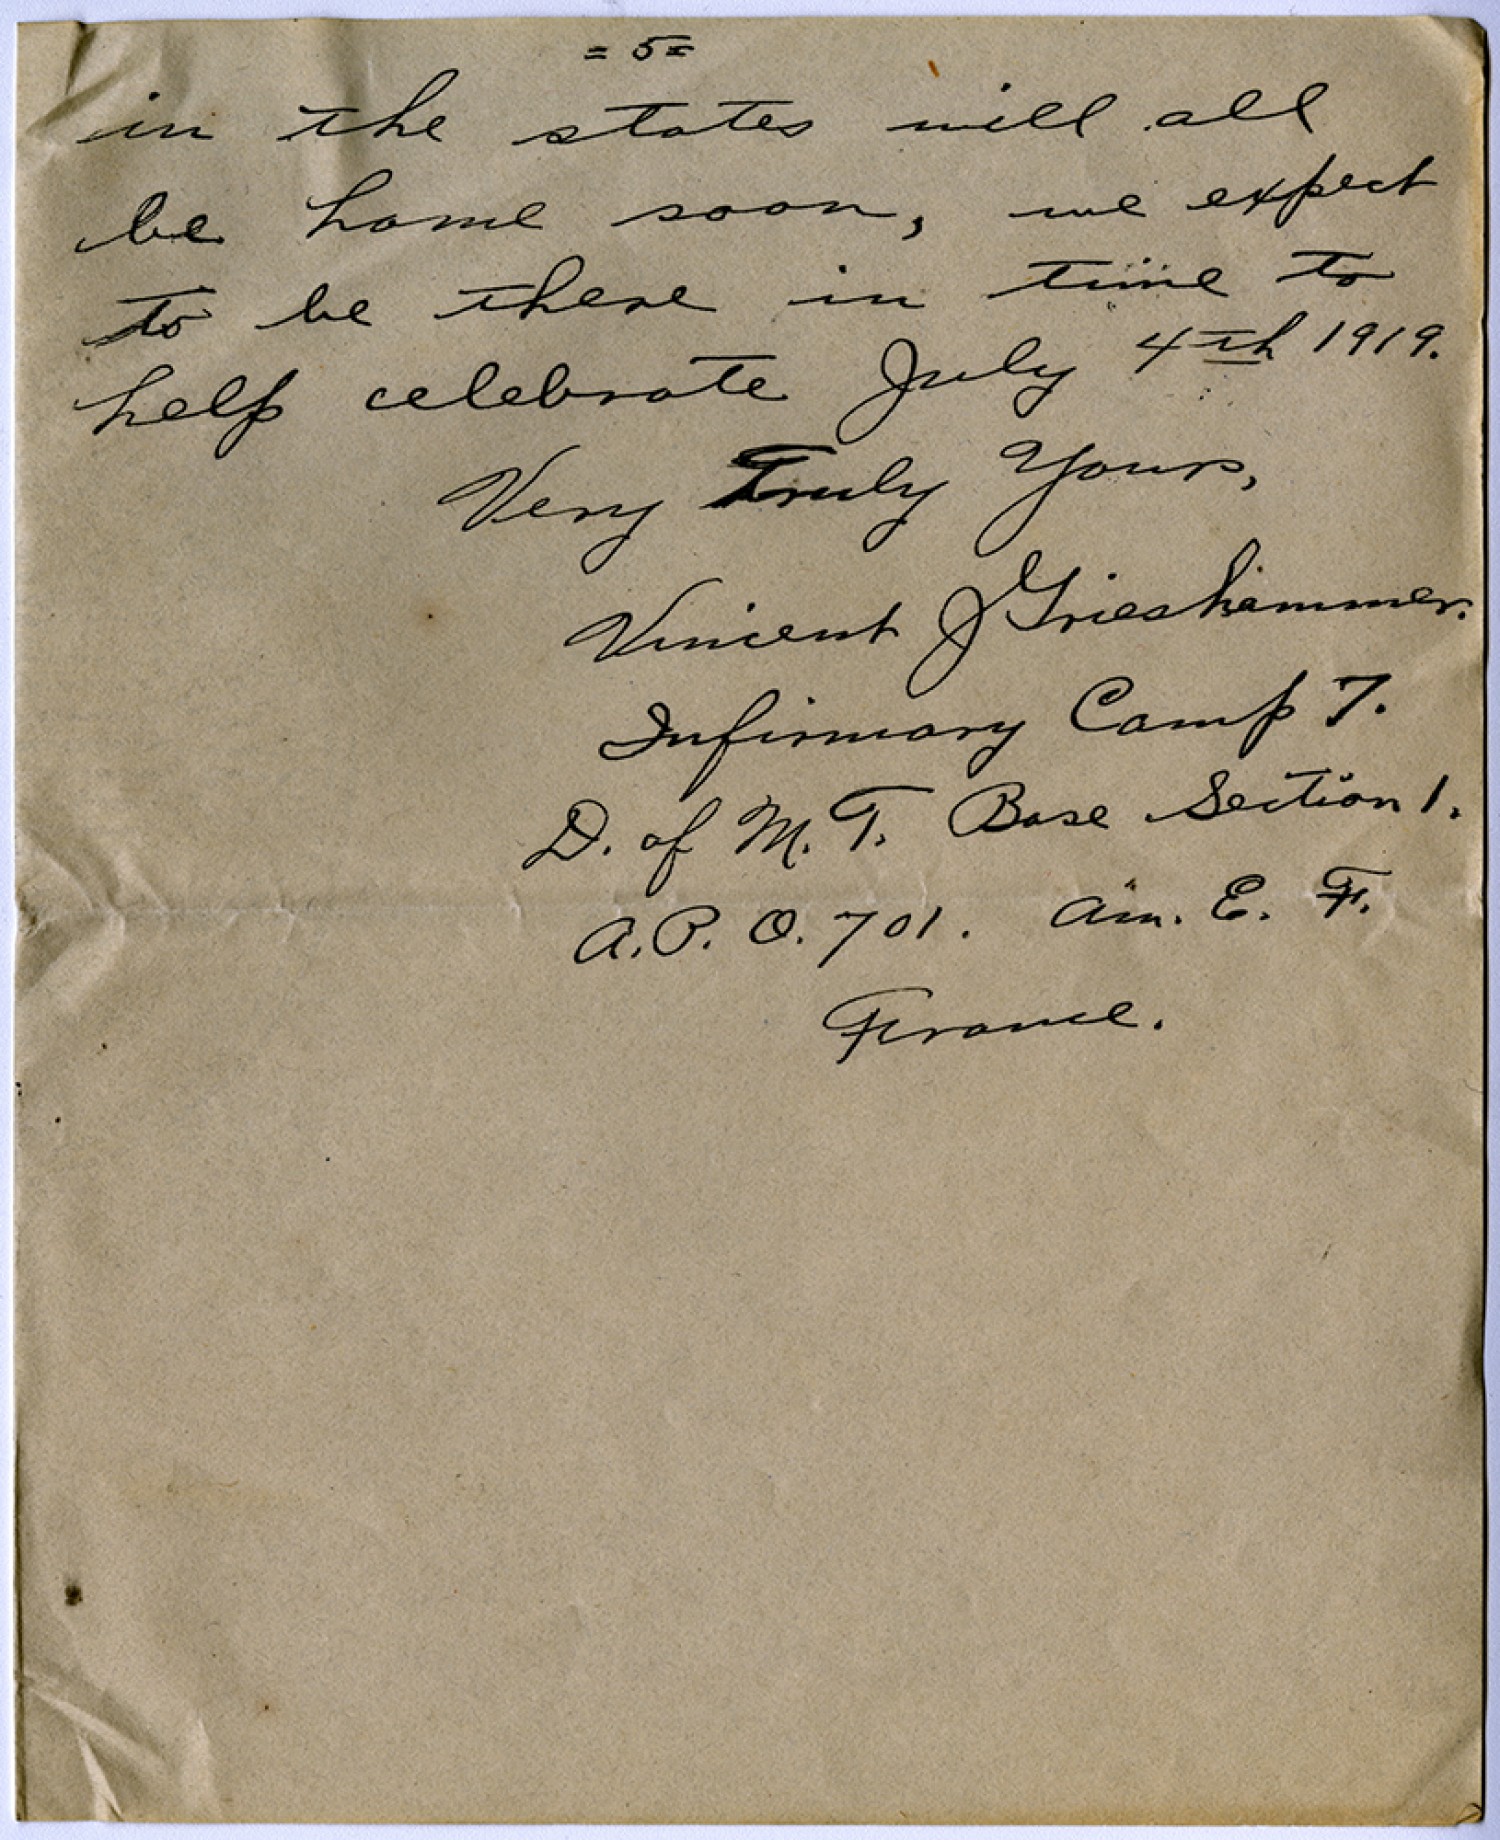 = 5 =
in the states will all
be home soon, we expect
to be there in time to
help celebrate July 4th 1919.
Very Truly Yours,
Vincent J Grieshammer.
Infirmary Camp 7.
D. of M. T. Base Section 1.
A. P. O. 701. Am. E. F.
France.